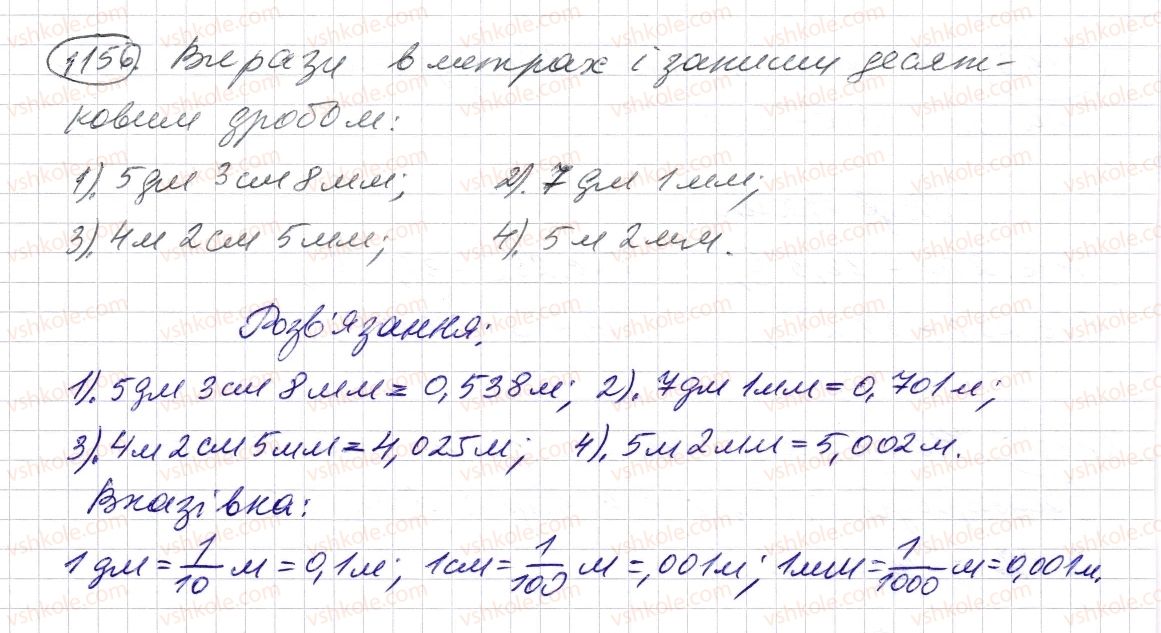 1156. Вирази в метрах і запиши десят-
ковим дробом:
1). 5дм 3см 8мм; 2). 7дм 1мм;
3). 4м 2см 5мм; 4). 5м 2мм.
Розв'язання:
1). 5дм 3см 8мм = 0,538м; 2). 7дм 1мм = 0,701м;
3). 4м 2см 5мм = 4,025м; 4). 5м 2мм = 5,002м.
Вказівка:
1дм = 1/10 м = 0,1м; 1см = 1/100 м = ,001м; 1мм = 1/1000 м = 0,001м.